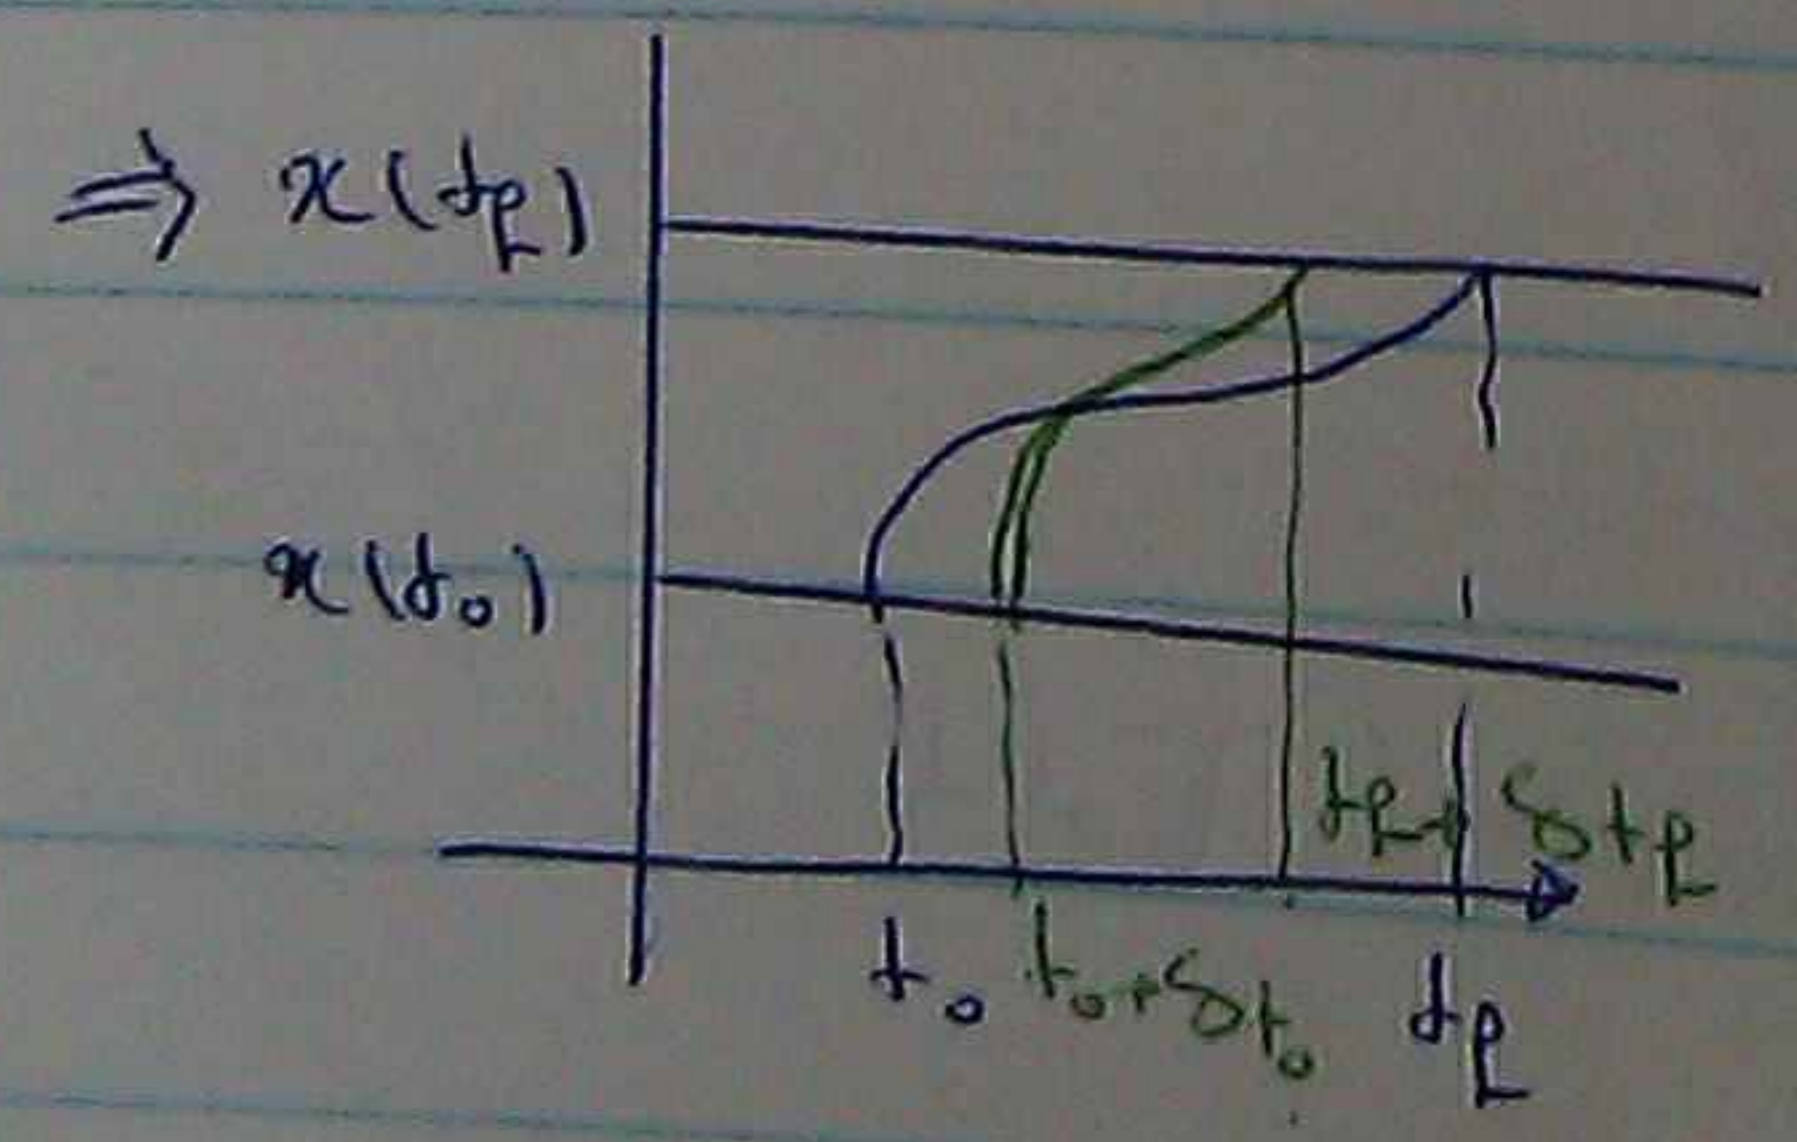 ⇒ x(t_f)
x(t_0)
t_f + δt_f
t_0 t_0+δt_0 t_f